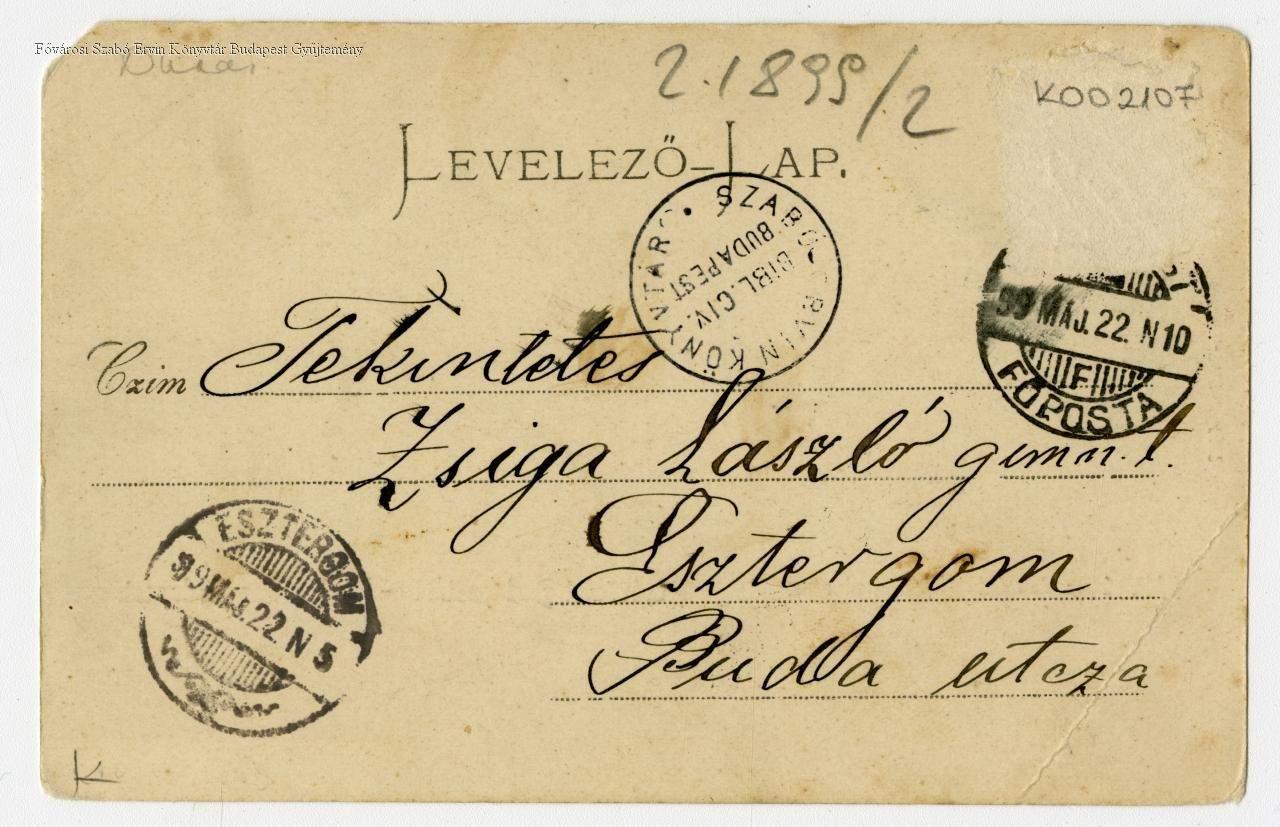 Fővárosi Szabó Ervin Könyvtár Budapest Gyűjtemény
2.1899/2
K002107
LEVELEZŐ-LAP.
SZABÓ ERVIN KÖNYVTÁR
BIBL. CIV.
BUDAPEST
99 MÁJ. 22. N10
F
FŐPOSTA
Czim Tekintetes
Zsiga László gimn. t.
Esztergom
Buda utcza
ESZTERGOM
99 MÁJ. 22. N 5
K